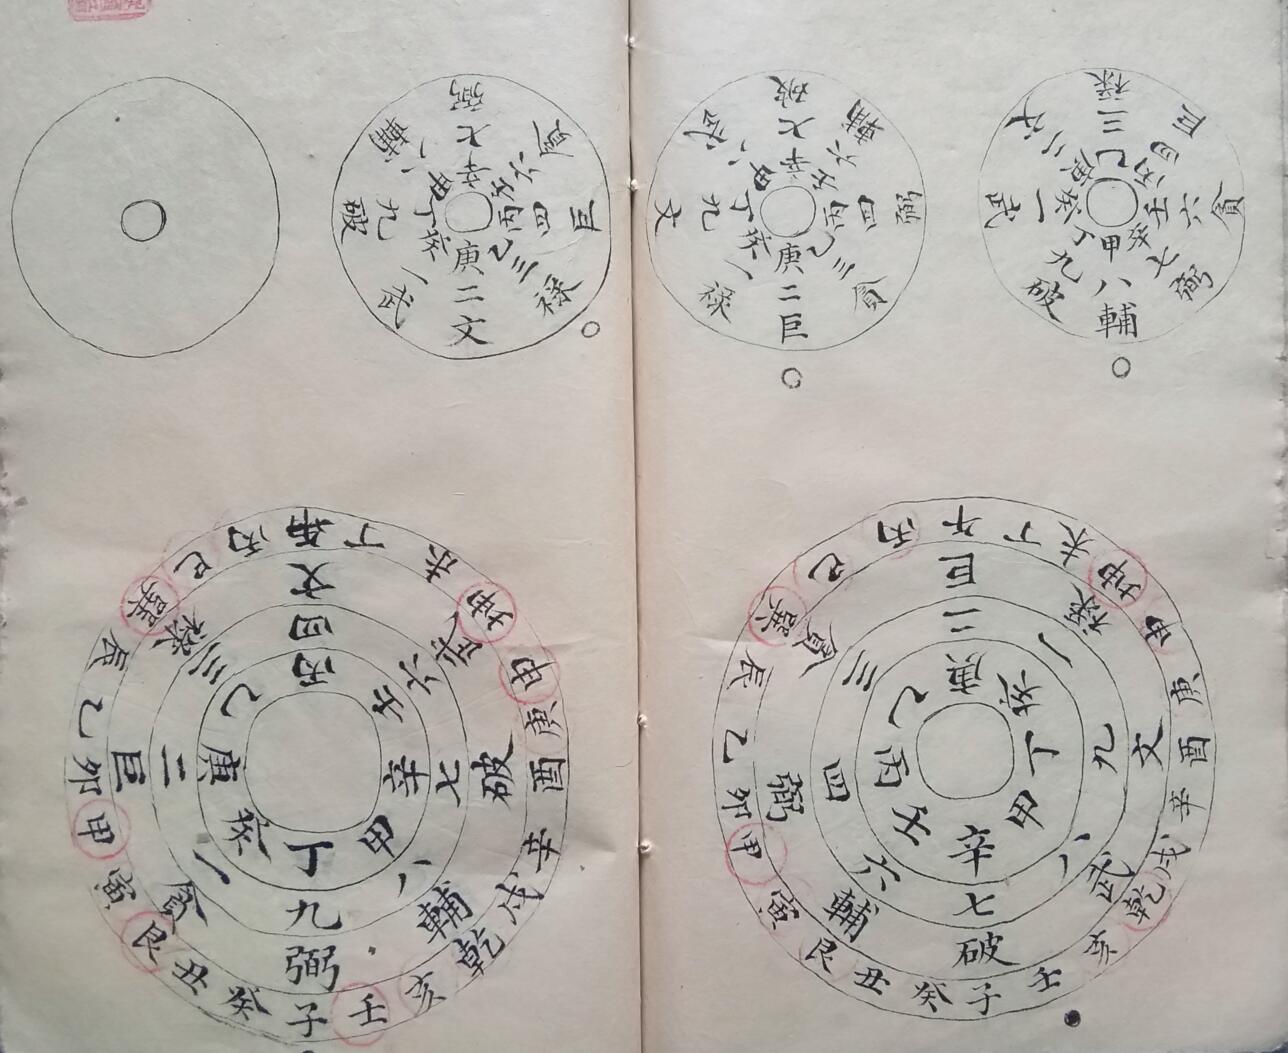 禄巨貪弼輔破武文
三四六七八九一二
乙丙壬甲丁癸庚
破輔弼貪巨禄文武
七六四三二一九八
辛壬丙乙庚癸丁甲
弼貪巨禄文武破輔
七六四三二一九八
辛壬丙乙庚癸丁甲
午丁未坤申庚酉辛戌乾亥壬子癸丑艮寅甲卯乙辰巽巳丙
巨禄文武破輔弼貪
二一九八七六四三
庚癸丁甲辛壬丙乙
午丁未坤申庚酉辛戌乾亥壬子癸丑艮寅甲卯乙辰巽巳丙
文武破輔弼貪巨禄
四六七八九一二三
丙壬辛甲丁癸庚乙